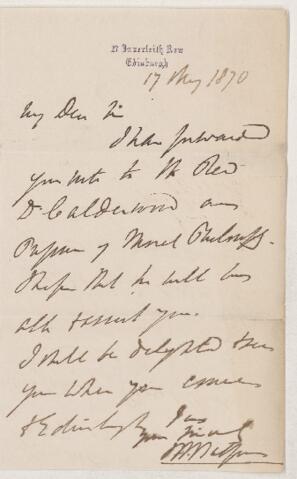 27 Inverleith Row
Edinburgh
17 May 1870
My Dear Sir
I have forwarded
your note to the Revd
Dr Calderwood our
Professor of Moral Philosophy.
I hope that he will be
able to assist you.
I shall be delighted to see
you when you come
to Edinburgh
Yours